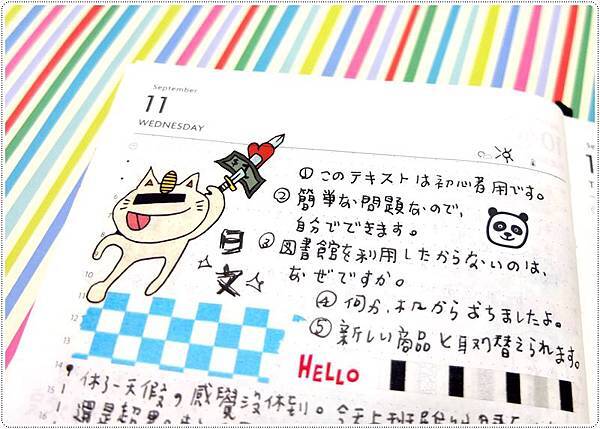 September
11
WEDNESDAY
①このテキストは初心者用です。
②簡単な問題なので、
自分でできます。
日
文
③図書館を利用したからないのは、
なぜですか。
④何か、机からおちましたよ。
⑤新しい商品と取り替えられます。
HELLO
休了一天假の感覺沒休到。今天上班
還是超累の